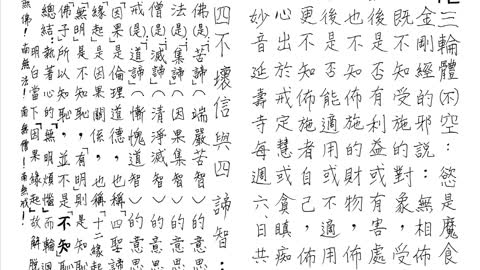 三輪體(不)空：慾是魔食
金剛經的邪說：無相佈
既不知受施對象，佈
後是否有利益或有害處
也不知佈施的財物，受
後是否能適用或不適用
更不知佈施者自己，佈
心出於戒定慧或貪瞋癡
妙音延於壽寺每週六、日共
四不壞信與四諦智：
佛(是)「苦諦」(端嚴苦智)的意思
法(是)「集諦」(因果集智)的意思
僧(是)「滅諦」(清淨滅智)的意思
戒(是)「道諦」(慚愧道智)的意思
「因果」是倫理道德，也稱「四聖諦
「緣起」是因果關係，也稱「十二緣起
「無明」是不知恥，「明」是知恥
「佛子」所以知恥，並不是「不知恥
總結：執著心的無明煩惱而輪迴
明白當下「因果緣起」故解脫
南無佛！南無法！南無僧！南無戒！